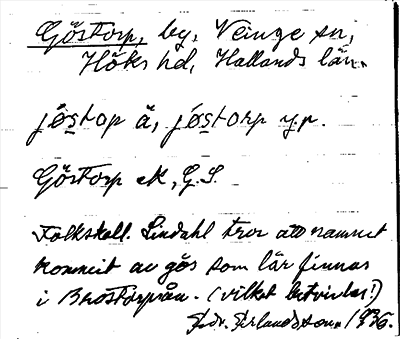 Göstorp, by, Veinge sn,
Höks hd, Hallands län.
jøstop ä, jøstorp y.p.
Göstorp ek, G.S.
Folkskoll. Lindahl tror att namnet
kommit av gös som lär finnas
i Brostorpsån. (vilket betvivlas!)
Edv. Erlandsson 1936.